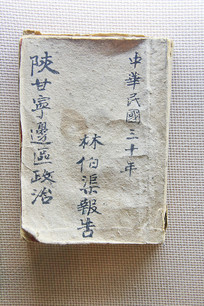 中華民國三十年
林伯渠報告
陝甘寧邊區政治